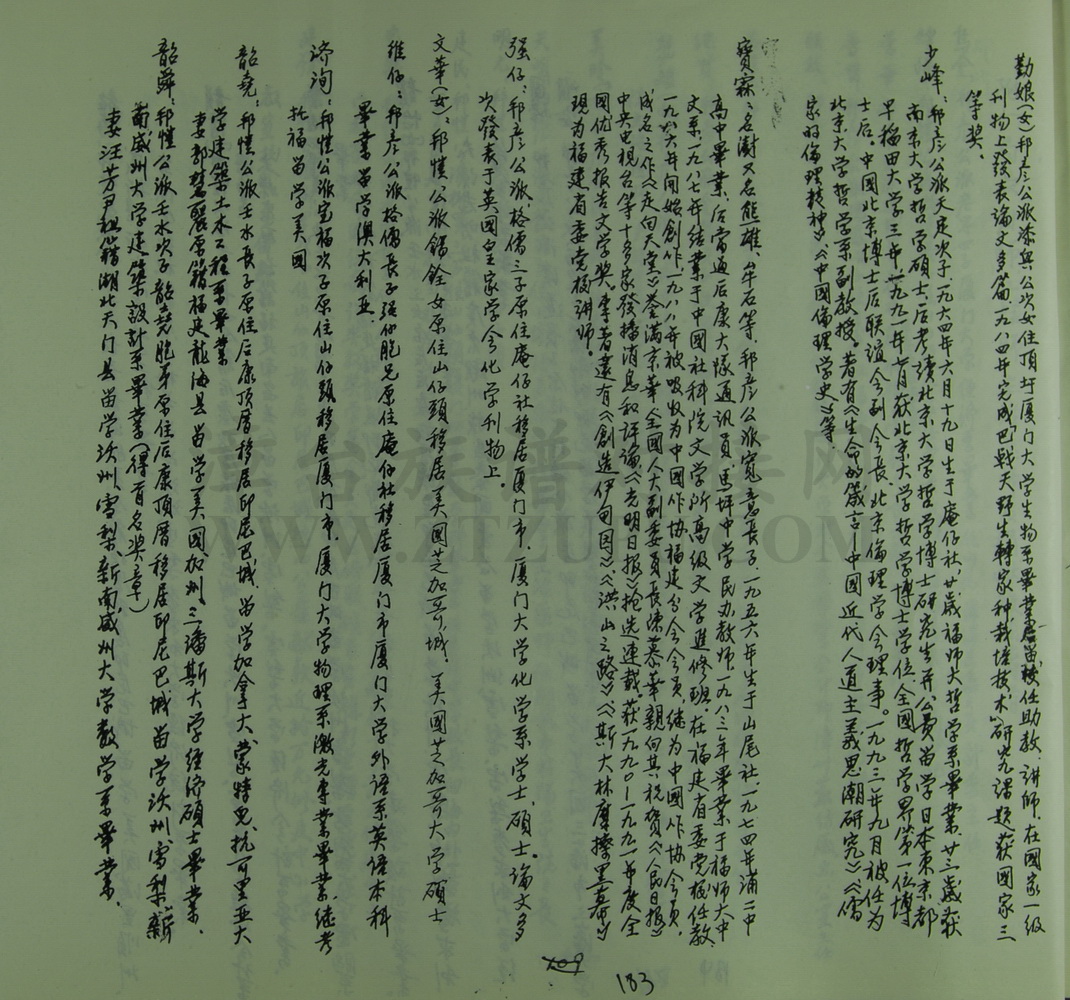 勤娘(女)邦彦公派添與公次女住頂圩厦门大学生物系畢業后留校任助教、讲师.在國家一级
刊物上發表論文多篇一九八四年完成《巴戟天野生轉家种栽培技术》研究九课题获國家三
等奖、
少峰:邦彦公派天足次子一九六四年六月十九日生于庵仔社,廿歲福师大哲学系畢業廿三歲获
南京大学哲学硕士,后考读北京大学哲学博士研究生并公费留学日本東京都
早稲田大学三年,一九九一年七月获北京大学哲学博士学位,全國哲学界第一位博
士后。中國北京博士后联谊会副会長、北京倫理学会理事。一九九三年九月被任为
北京大学哲学系副教授。著有《生命的箴言—中國近代人道主義思潮研究》《儒
家的倫理精神》《中國倫理学史》等
寶霖:名澍又名熊雄、牟石等,邦彦公派寬意長子,一九五六年生于山尾社,一九七四年浦二中
高中畢業,后當過后康大隊通讯员、馬坪中学民办教师,一九八三年畢業于福师大中
文系,一九八七年结業于中國社科院文学所高级文学進修班,在福建省委党校任教
一九八六年開始創作,一九八八年被吸收为中國作协福建分会会员,继为中國作协会员,
成名之作《走向天堂》荃满京華全國人大副委员長陳慕華親向其祝賀《人民日报》
中央电視台等十多家發播消息和评論《光明日报》抢先連載。获一九九〇—一九九一年度全
國优秀报告文学奖,李著還有《創造伊甸园》《洪山之路》《斯大林摩擦黑幕》
現为福建省委党校讲师。
强仔:邦彦公派,格儒三子原住庵仔社移居厦门市.厦门大学化学系学士、碩士。論文多
次發表于英國皇家学会化学刊物上。
文華(女):邦愷公派錫銓女原住山仔頭移居美國芝加哥城.美國芝加哥大学碩士
维仔:邦彦公派格儒長子强仔胞兄原住庵仔社移居厦门市厦门大学外语系英语本科
畢業留学澳大利亚.
济洵:邦愷公派宝福次子原住山仔頭移居厦门市.厦门大学物理系激光專業畢業.继考
托福留学美國
韶堯:邦愷公派壬水長子原住后康頂厝移居印尼巴城.留学加拿大《蒙特児、抗可里亚大
学建築土木工程系畢業
妻郭慧麗原籍福建龍海县.留学美國加州、三潘斯大学經濟碩士畢業.
韶舜:邦愷公派壬水次子韶堯胞弟原住后康頂厝移居印尼巴城留学汶州《雪梨》新
南威州大学建築設計系畢業(得首名奖章)
妻汪芳尹祖籍湖北天门县留学汶州、雪梨、新南威州大学数学系畢業.
183
章台族譜
WWW.ZTZUPU.COM